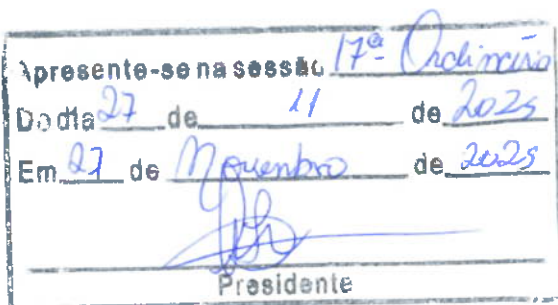 Apresente-se na sessão 17ª Ordinária
Do dia 27 de 11 de 2025
Em 27 de Novembro de 2025
Presidente